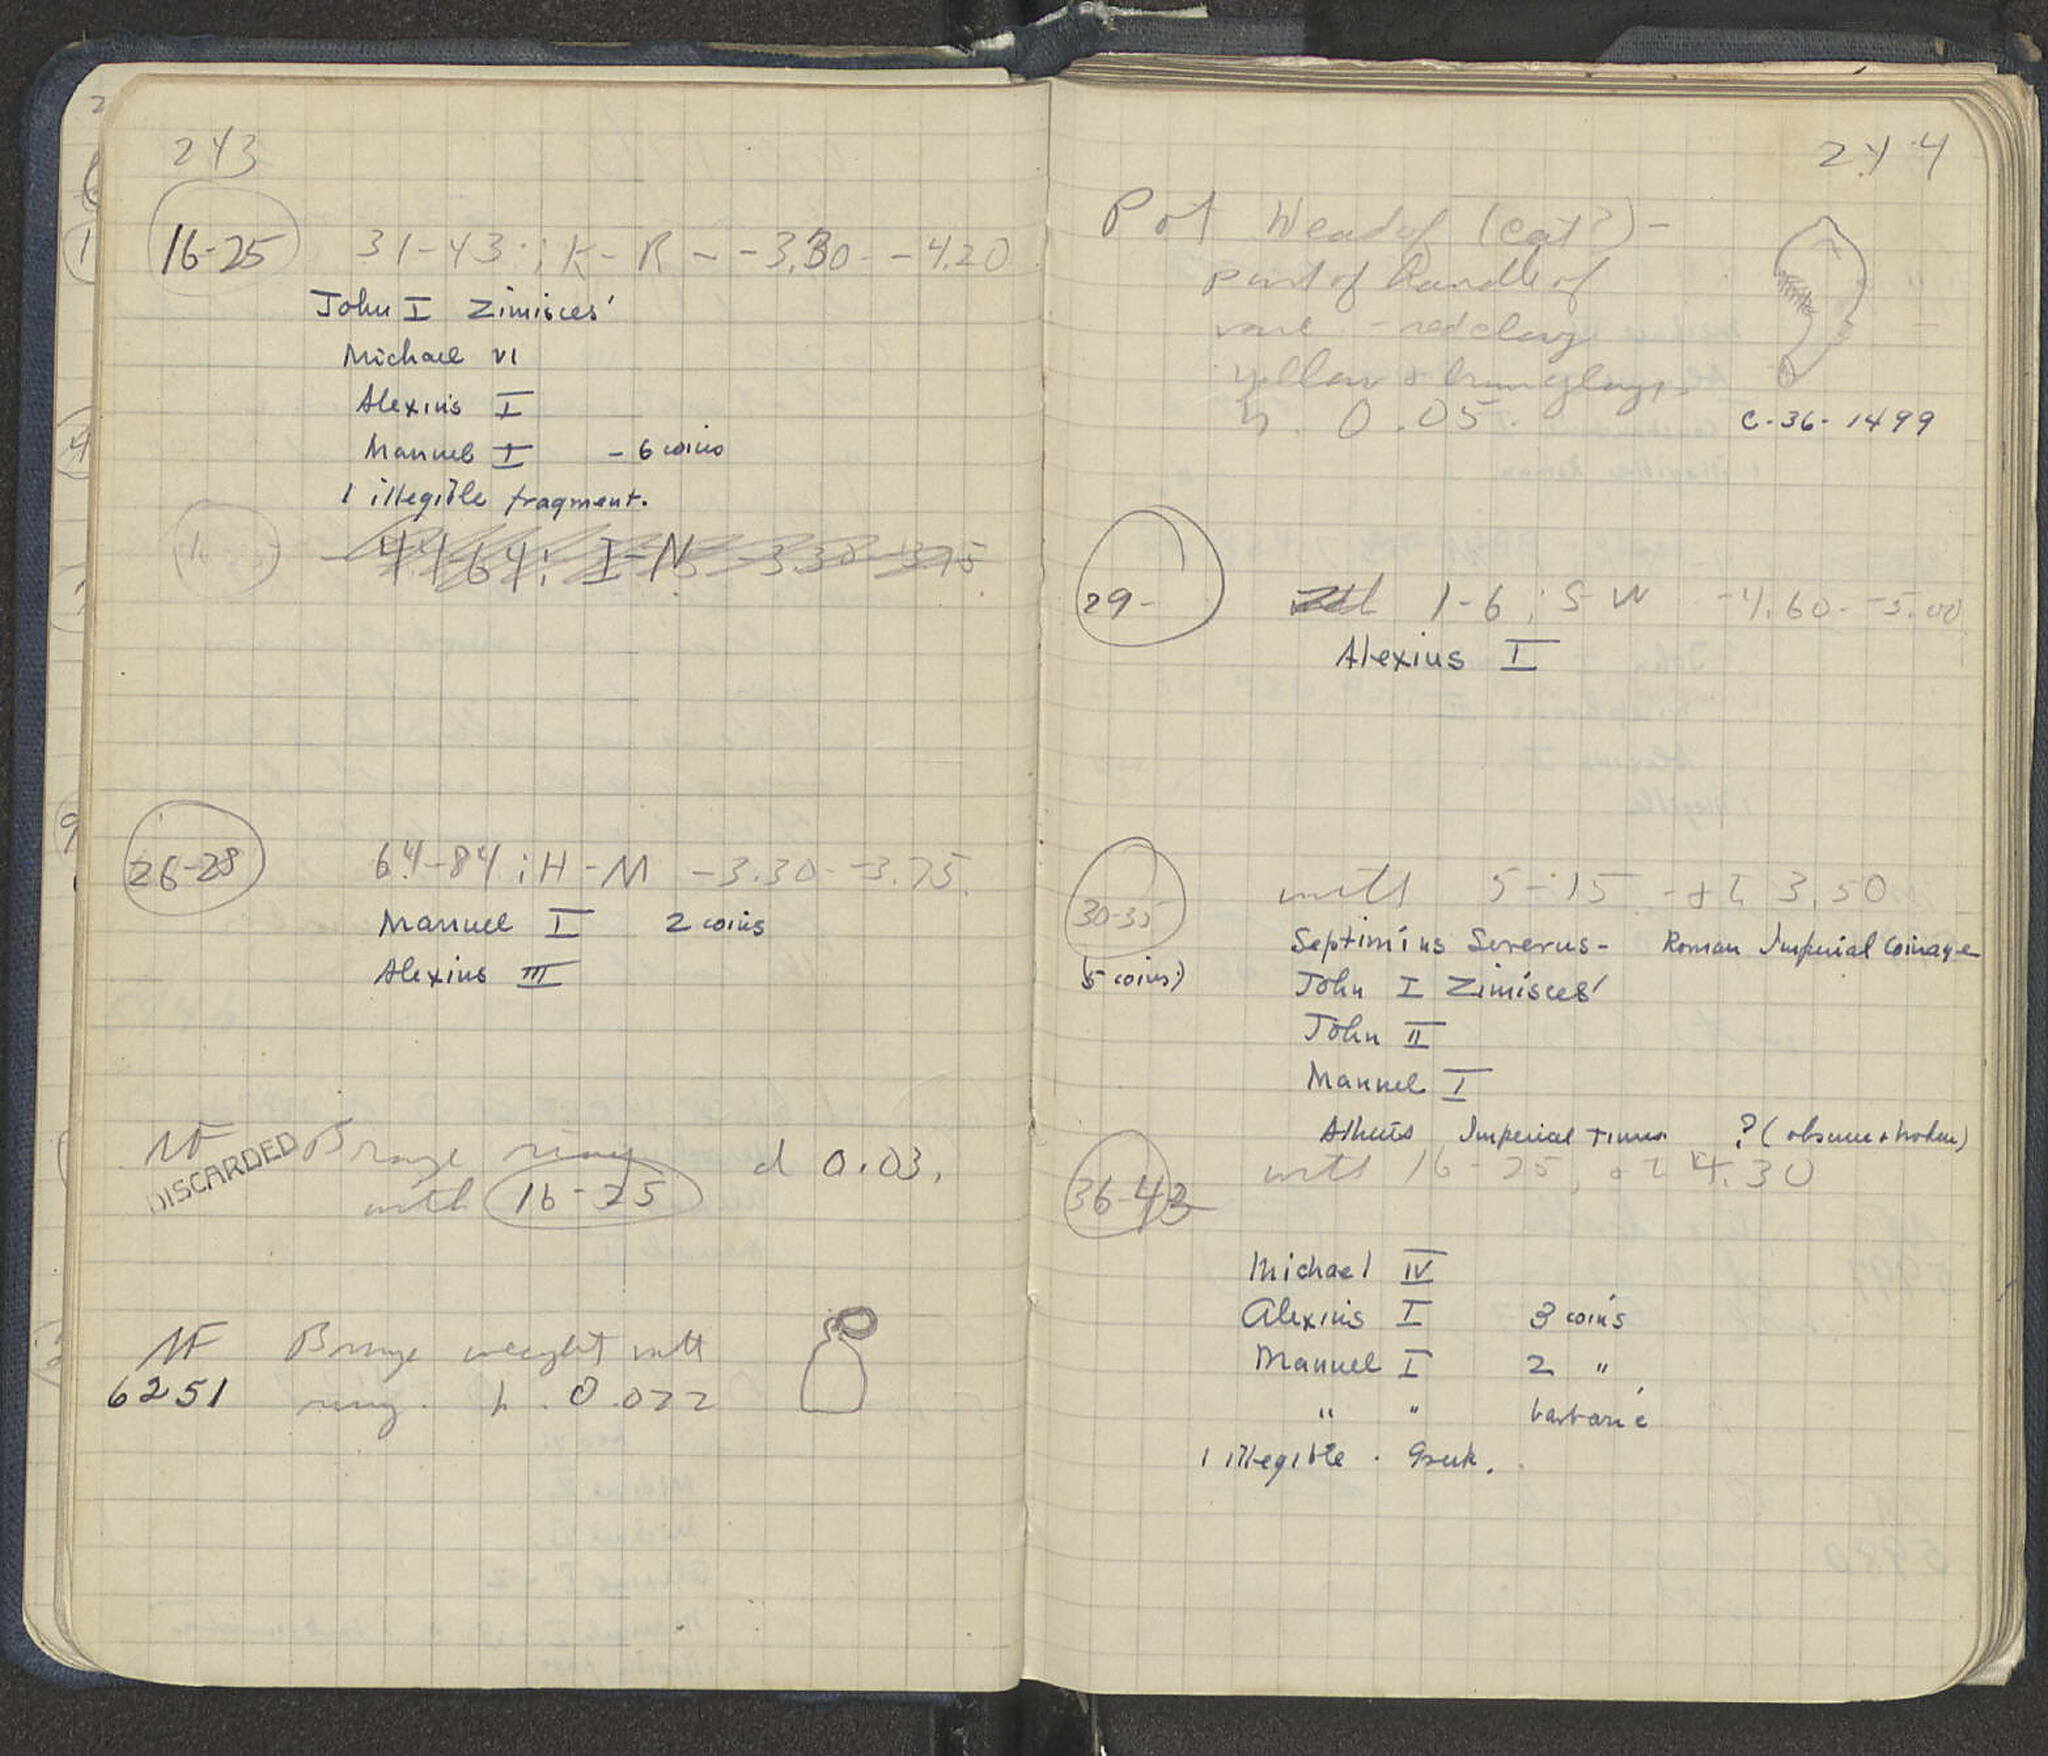 243
16-25 31-43 ; K-R - -3.30 - -4.20
John I Zimisces'
Michael VI
Alexius I
Manuel I - 6 coins
1 illegible fragment.
44-64 ; I-N -3.30 -3.75
26-28 64-84 ; H-M -3.30 - -3.75.
Manuel I 2 coins
Alexius III
MF Bronze ring d 0.03.
DISCARDED
with 16-25
MF Bronze weight with
6251 ring. h. 0.022
244
Pot Head of (cat?) -
part of handle of
vase - red clay
yellow & brown glaze.
h. 0.05.
C-36-1499
29- 1-6 ; S-W -4.60 - -5.00
Alexius I
30-35 with 5-15 - at 3.50
(5 coins)
Septimius Severus - Roman Imperial Coinage
John I Zimisces'
John II
Manuel I
Athens Imperial times ? (obscure & broken)
36-43 with 16-25, at 4.30
Michael IV
Alexius I 3 coins
Manuel I 2 "
" " barbaric
1 illegible . Greek.